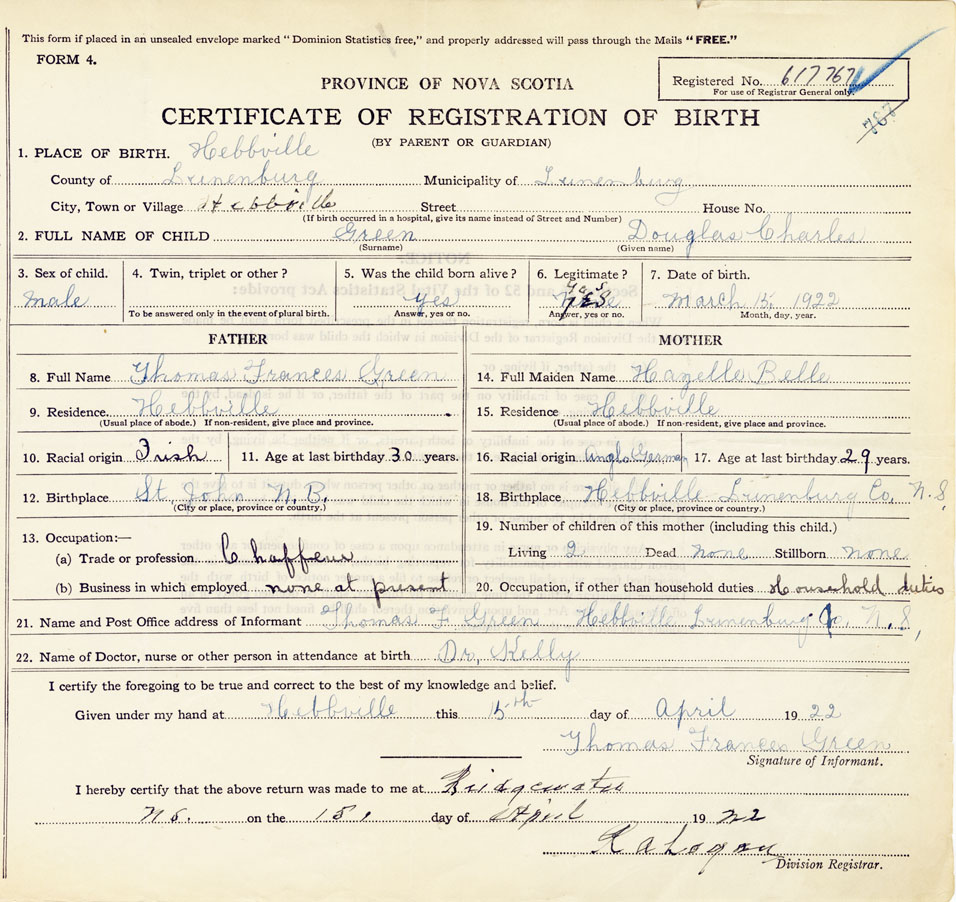 This form if placed in an unsealed envelope marked "Dominion Statistics free," and properly addressed will pass through the Mails "FREE."
FORM 4.
PROVINCE OF NOVA SCOTIA
Registered No. 617767
For use of Registrar General only.
787
CERTIFICATE OF REGISTRATION OF BIRTH
(BY PARENT OR GUARDIAN)
1. PLACE OF BIRTH. Hebbville
County of Lunenburg Municipality of Lunenburg
City, Town or Village Hebbville Street House No.
(If birth occurred in a hospital, give its name instead of Street and Number)
2. FULL NAME OF CHILD Green Douglas Charles
(Surname) (Given name)
3. Sex of child. 4. Twin, triplet or other? 5. Was the child born alive? 6. Legitimate? 7. Date of birth.
Male yes Yes March 15, 1922
To be answered only in the event of plural birth. Answer, yes or no. Answer, yes or no. Month, day, year.
FATHER MOTHER
8. Full Name Thomas Frances Green 14. Full Maiden Name Hazelle Belle
9. Residence. Hebbville 15. Residence Hebbville
(Usual place of abode.) If non-resident, give place and province. (Usual place of abode.) If non-resident, give place and province.
10. Racial origin Irish 11. Age at last birthday 30 years. 16. Racial origin Anglo German 17. Age at last birthday 29 years.
12. Birthplace St. John N.B. 18. Birthplace Hebbville Lunenburg Co, N.S,
(City or place, province or country.) (City or place, province or country.)
13. Occupation:— 19. Number of children of this mother (including this child.)
(a) Trade or profession Chaffeur Living 2 Dead none Stillborn none
(b) Business in which employed none at present 20. Occupation, if other than household duties Household duties
21. Name and Post Office address of Informant Thomas F. Green Hebbville Lunenburg Co. N.S,
22. Name of Doctor, nurse or other person in attendance at birth Dr, Kelly
I certify the foregoing to be true and correct to the best of my knowledge and belief.
Given under my hand at Hebbville this 15th day of April 1922
Thomas Frances Green
Signature of Informant.
I hereby certify that the above return was made to me at Bridgewater
N.S. on the 15, day of April 1922
Division Registrar.